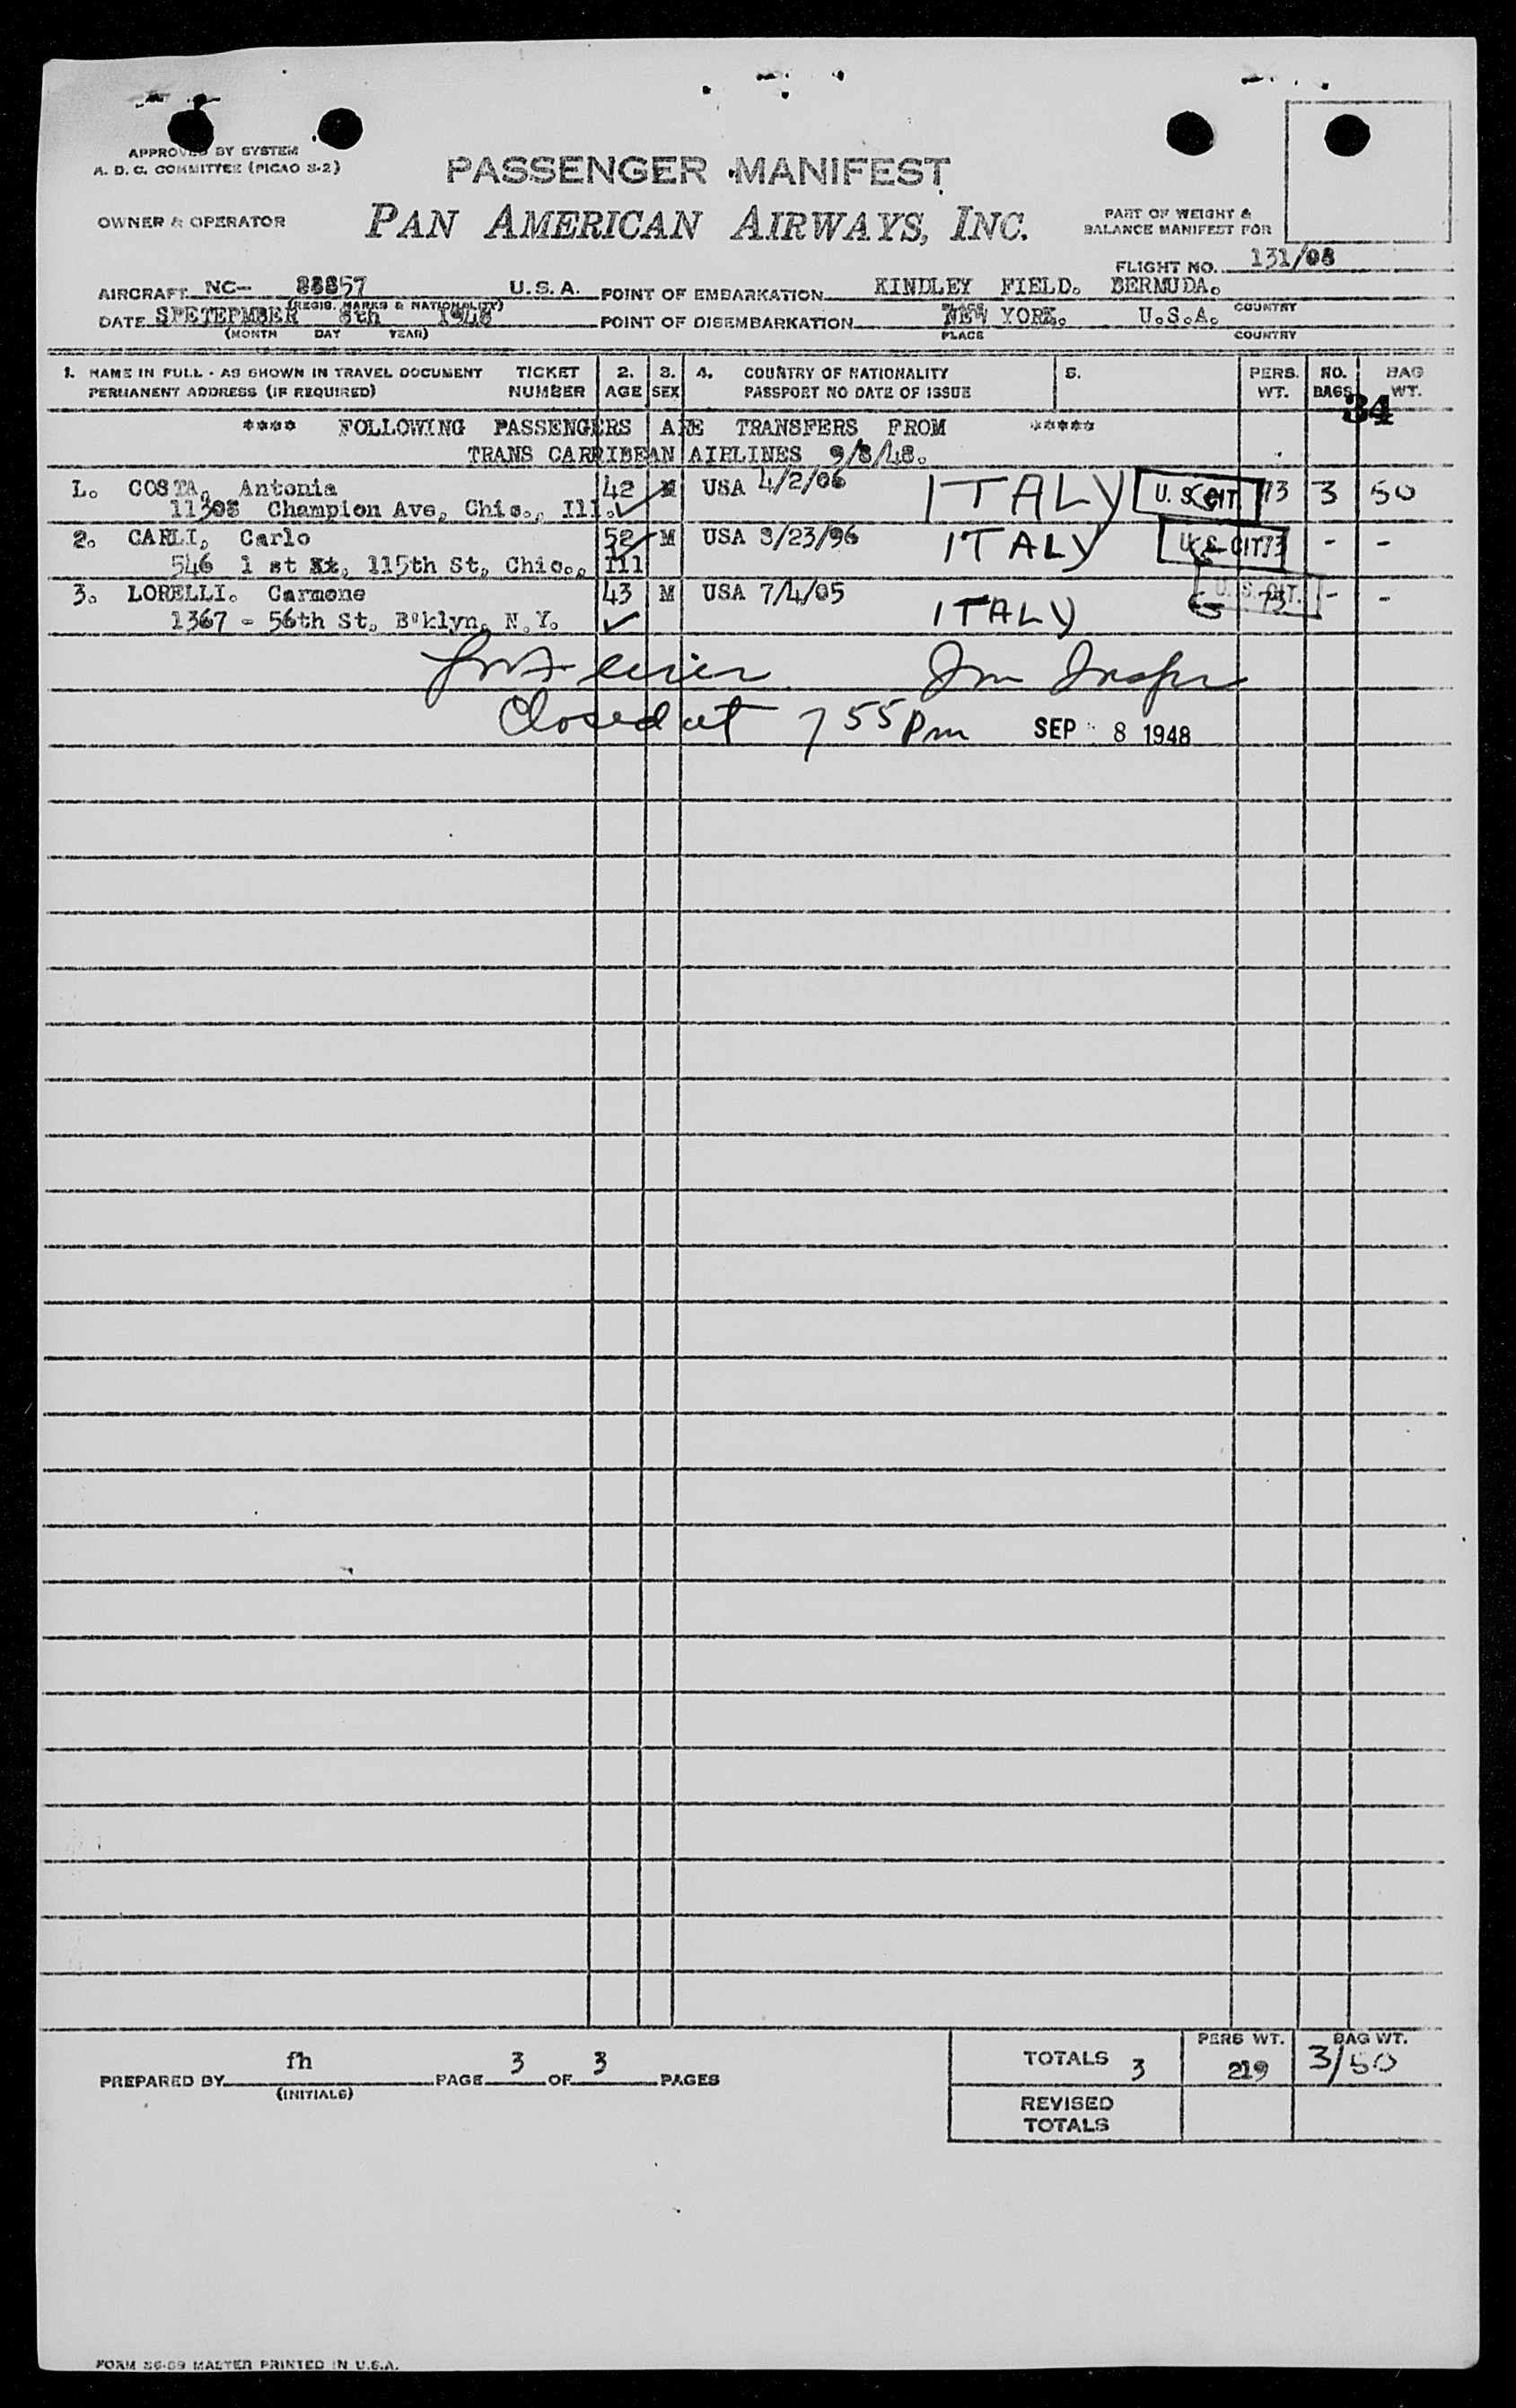 APPROVED BY SYSTEM
A. D. C. COMMITTEE (PICAO S-2)
PASSENGER MANIFEST
OWNER & OPERATOR
PAN AMERICAN AIRWAYS, INC.
PART OF WEIGHT &
BALANCE MANIFEST FOR
FLIGHT NO. 131/08
AIRCRAFT NC- 88857 U.S.A. POINT OF EMBARKATION KINDLEY FIELD. BERMUDA.
(REGIS. MARKS & NATIONALITY) PLACE COUNTRY
DATE SPETEPMBER 8th 1948 POINT OF DISEMBARKATION NEW YORK. U.S.A.
(MONTH DAY YEAR) PLACE COUNTRY
1. NAME IN FULL - AS SHOWN IN TRAVEL DOCUMENT TICKET 2. 3. 4. COUNTRY OF NATIONALITY 5. PERS. NO. BAG
PERMANENT ADDRESS (IF REQUIRED) NUMBER AGE SEX PASSPORT NO DATE OF ISSUE WT. BAGS WT.
34
**** FOLLOWING PASSENGERS ARE TRANSFERS FROM *****
TRANS CARRIBEAN AIRLINES 9/8/48.
1. COSTA, Antonia 42 M USA 4/2/06 ITALY U. S. CIT. 73 3 50
11308 Champion Ave, Chic., Ill.
2. CARLI, Carlo 52 M USA 3/23/96 ITALY U. S. CIT. 73 - -
546 1 st Xt, 115th St, Chic., Ill
3. LORELLI. Carmone 43 M USA 7/4/05 ITALY U. S. CIT. 73 - -
1367 - 56th St, B'klyn, N.Y.
Closed at 7 55 pm SEP 8 1948
TOTALS 3 PERS WT. 219 BAG WT. 3/50
PREPARED BY fh PAGE 3 OF 3 PAGES
(INITIALS)
REVISED
TOTALS
FORM S6-59 MASTER PRINTED IN U.S.A.